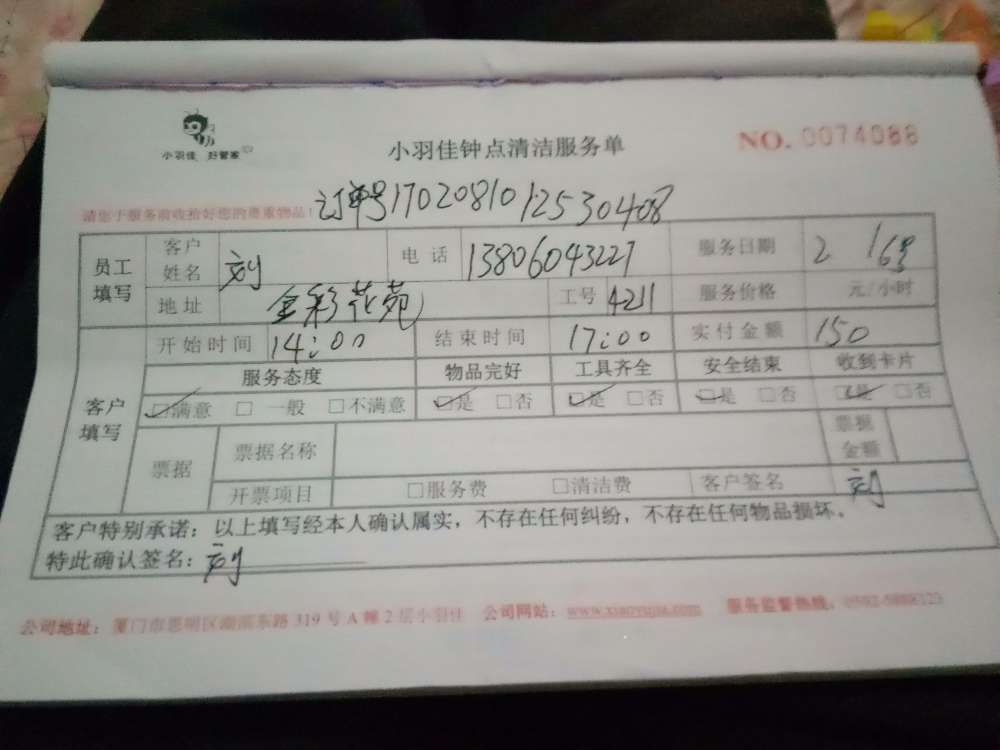 小羽佳 好管家
小羽佳钟点清洁服务单
NO. 0074088
请您于服务前收拾好您的贵重物品!
订单号1702081012530408
员工填写 客户姓名 刘 电话 13806043227 服务日期 2 16号
地址 金彩花苑 工号 4211 服务价格 元/小时
客户填写 开始时间 14:00 结束时间 17:00 实付金额 150
服务态度 物品完好 工具齐全 安全结束 收到卡片
☑满意 □一般 □不满意 ☑是 □否 ☑是 □否 ☑是 □否 ☑是 □否
票据 票据名称 票据金额
开票项目 □服务费 □清洁费 客户签名 刘
客户特别承诺:以上填写经本人确认属实,不存在任何纠纷,不存在任何物品损坏。
特此确认签名:刘
公司地址:厦门市思明区湖滨东路 319 号 A 幢 2 层小羽佳 公司网站:www.xiaoyujia.com 服务监督热线: